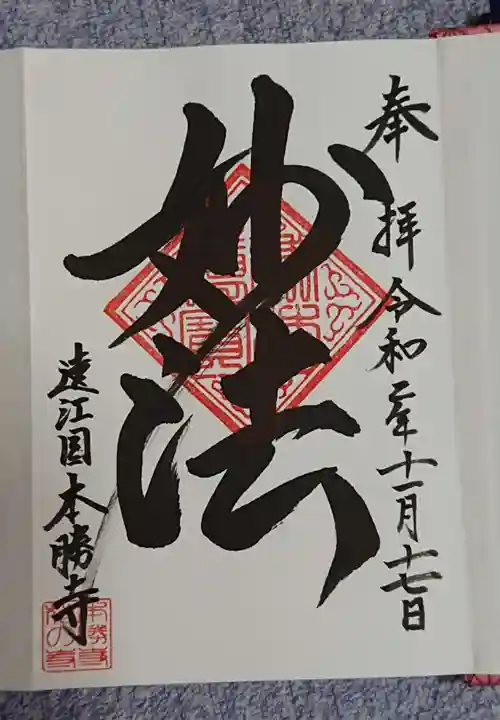 奉拝 令和二年十一月十七日
妙法
遠江国本勝寺